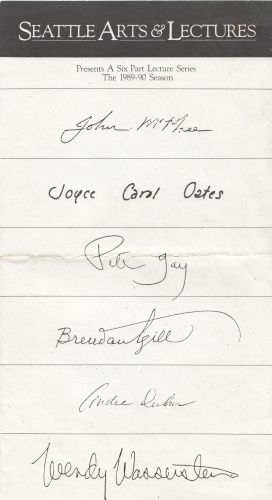 SEATTLE ARTS & LECTURES
Presents A Six Part Lecture Series
The 1989-90 Season
John McPhee
Joyce Carol Oates
Peter Gay
Brendan Gill
Andre Dubus
Wendy Wasserstein